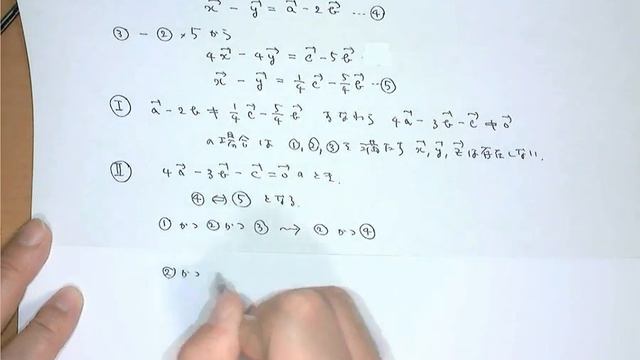 x⃗ - y⃗ = a⃗ - 2b⃗ …④
③ - ②×5 から
4x⃗ - 4y⃗ = c⃗ - 5b⃗
x⃗ - y⃗ = 1/4 c⃗ - 5/4 b⃗ …⑤
Ⅰ a⃗ - 2b⃗ ≠ 1/4 c⃗ - 5/4 b⃗ すなわち 4a⃗ - 3b⃗ - c⃗ ≠ 0⃗
の場合は ①,②,③を満たす x⃗, y⃗, z⃗ は存在しない.
Ⅱ 4a⃗ - 3b⃗ - c⃗ = 0⃗ のとき.
④ ⇔ ⑤ となる.
① かつ ② かつ ③ ⇝ ② かつ ④
② かつ